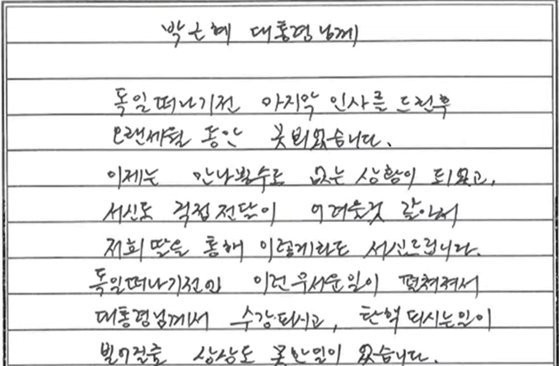 박근혜 대통령님께
독일떠나기전 마지막 인사를 드린후
오랜세월 동안 못뵈었습니다.
이제는 만나뵐수도 없는 상황이 되었고,
서신도 직접전달이 어려울것 같아서
저희 딸을 통해 이렇게라도 서신드립니다.
독일떠나기전에 이런 무서운일이 펼쳐져서
대통령님께서 수감되시고, 탄핵되시는일이
벌어질줄 상상도 못한일이 었습니다.